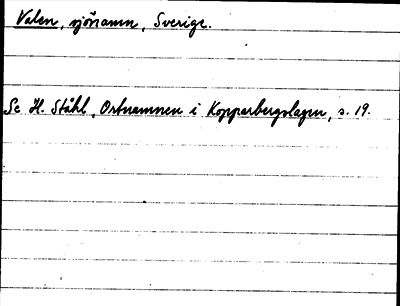 Valen, sjönamn, Sverige.
Se H. Ståhl, Ortnamnen i Kopparbergslagen, s. 19.